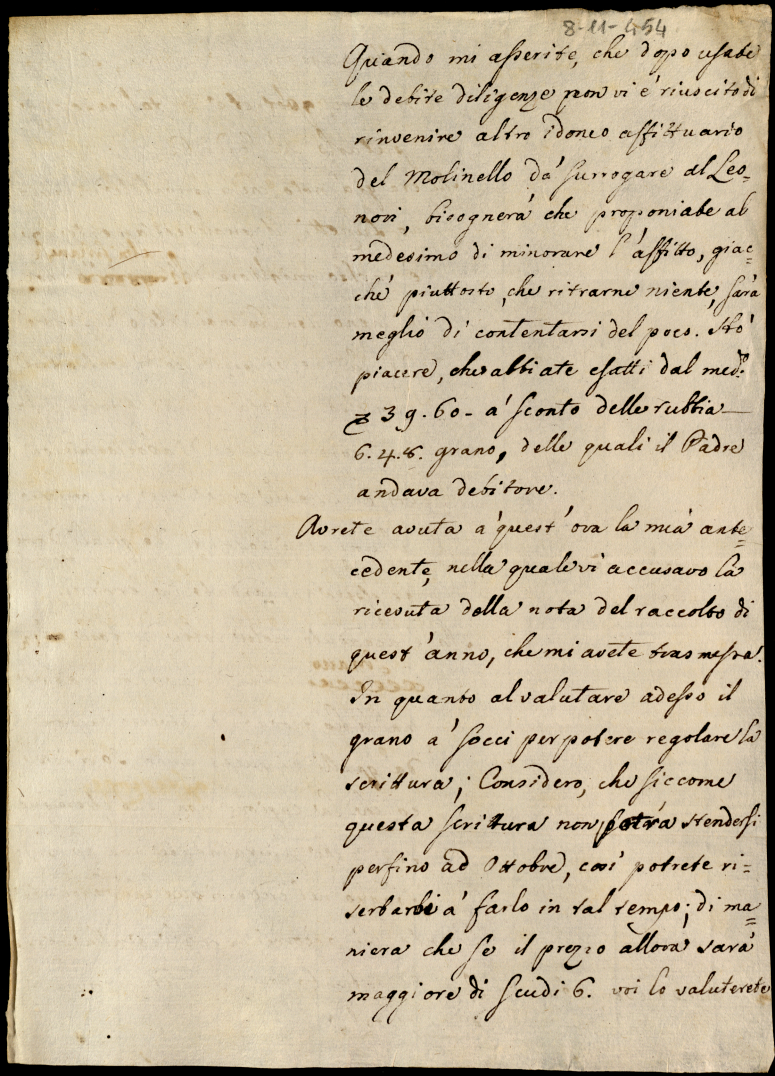 8-11-454
Quando mi asserite, che dopo usate
le debite diligenze non vi è riuscito di
rinvenire altro idoneo affittuario
del Molinello dà surrogare al Leo-
novi, bisognerà che proponiate al
medesimo di minorare l'affitto, giac=
chè piuttosto, che ritrarne niente, sarà
meglio di contentarsi del poco. Hò
piacere, che abbiate esatti dal med.º
39.60- à sconto delle rubbia
6.4.8. grano, delle quali il Padre
andava debitore.
Avrete avuta à quest'ora la mia ante=
cedente, nella quale vi accusavo la
ricevuta della nota del raccolto di
quest'anno, che mi avete trasmessa.
In quanto al valutare adesso il
grano a' socci per potere regolare la
scrittura; Considero, che siccome
questa scrittura non potrà stendersi
perfino ad Ottobre, così potrete ri=
serbarvi à farlo in tal tempo; di ma=
niera che se il prezzo allora sarà
maggiore di scudi 6. voi lo valuterete